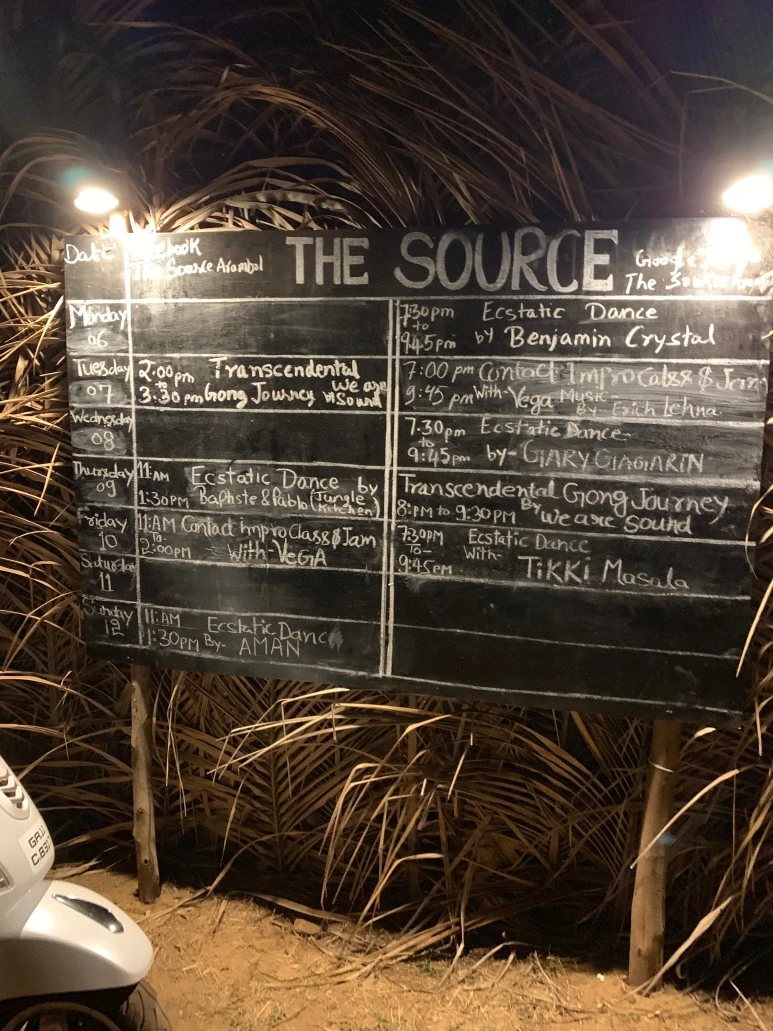 Date
THE SOURCE
The Source Arambol
The
Monday
06
7:30pm Ecstatic Dance
to
9:45pm by Benjamin Crystal
Tuesday
07
2:00pm Transcendental
to
3:30pm Gong Journey by we are sound
7:00 pm Contact Impro Calss & Jam
9:45 pm With-Vega Music By- Erich Lehna
Wednesday
08
7:30pm Ecstatic Dance-
to
9:45pm by- GIARY GIAGIARIN
Thursday
09
11:AM Ecstatic Dance by
1:30PM Baphste & Pablo (Jungle Kitchen)
Transcendental Gong Journey
8:PM to 9:30PM By we are Sound
Friday
10
11:AM Contact Impro Class & Jam
To-
2:00PM With-VeGIA
7:30PM Ecstatic Dance
To- With-
9:45PM TiKKi Masala
Saturday
11
Sunday
12
11:AM Ecstatic Dance
1:30PM By- AMAN